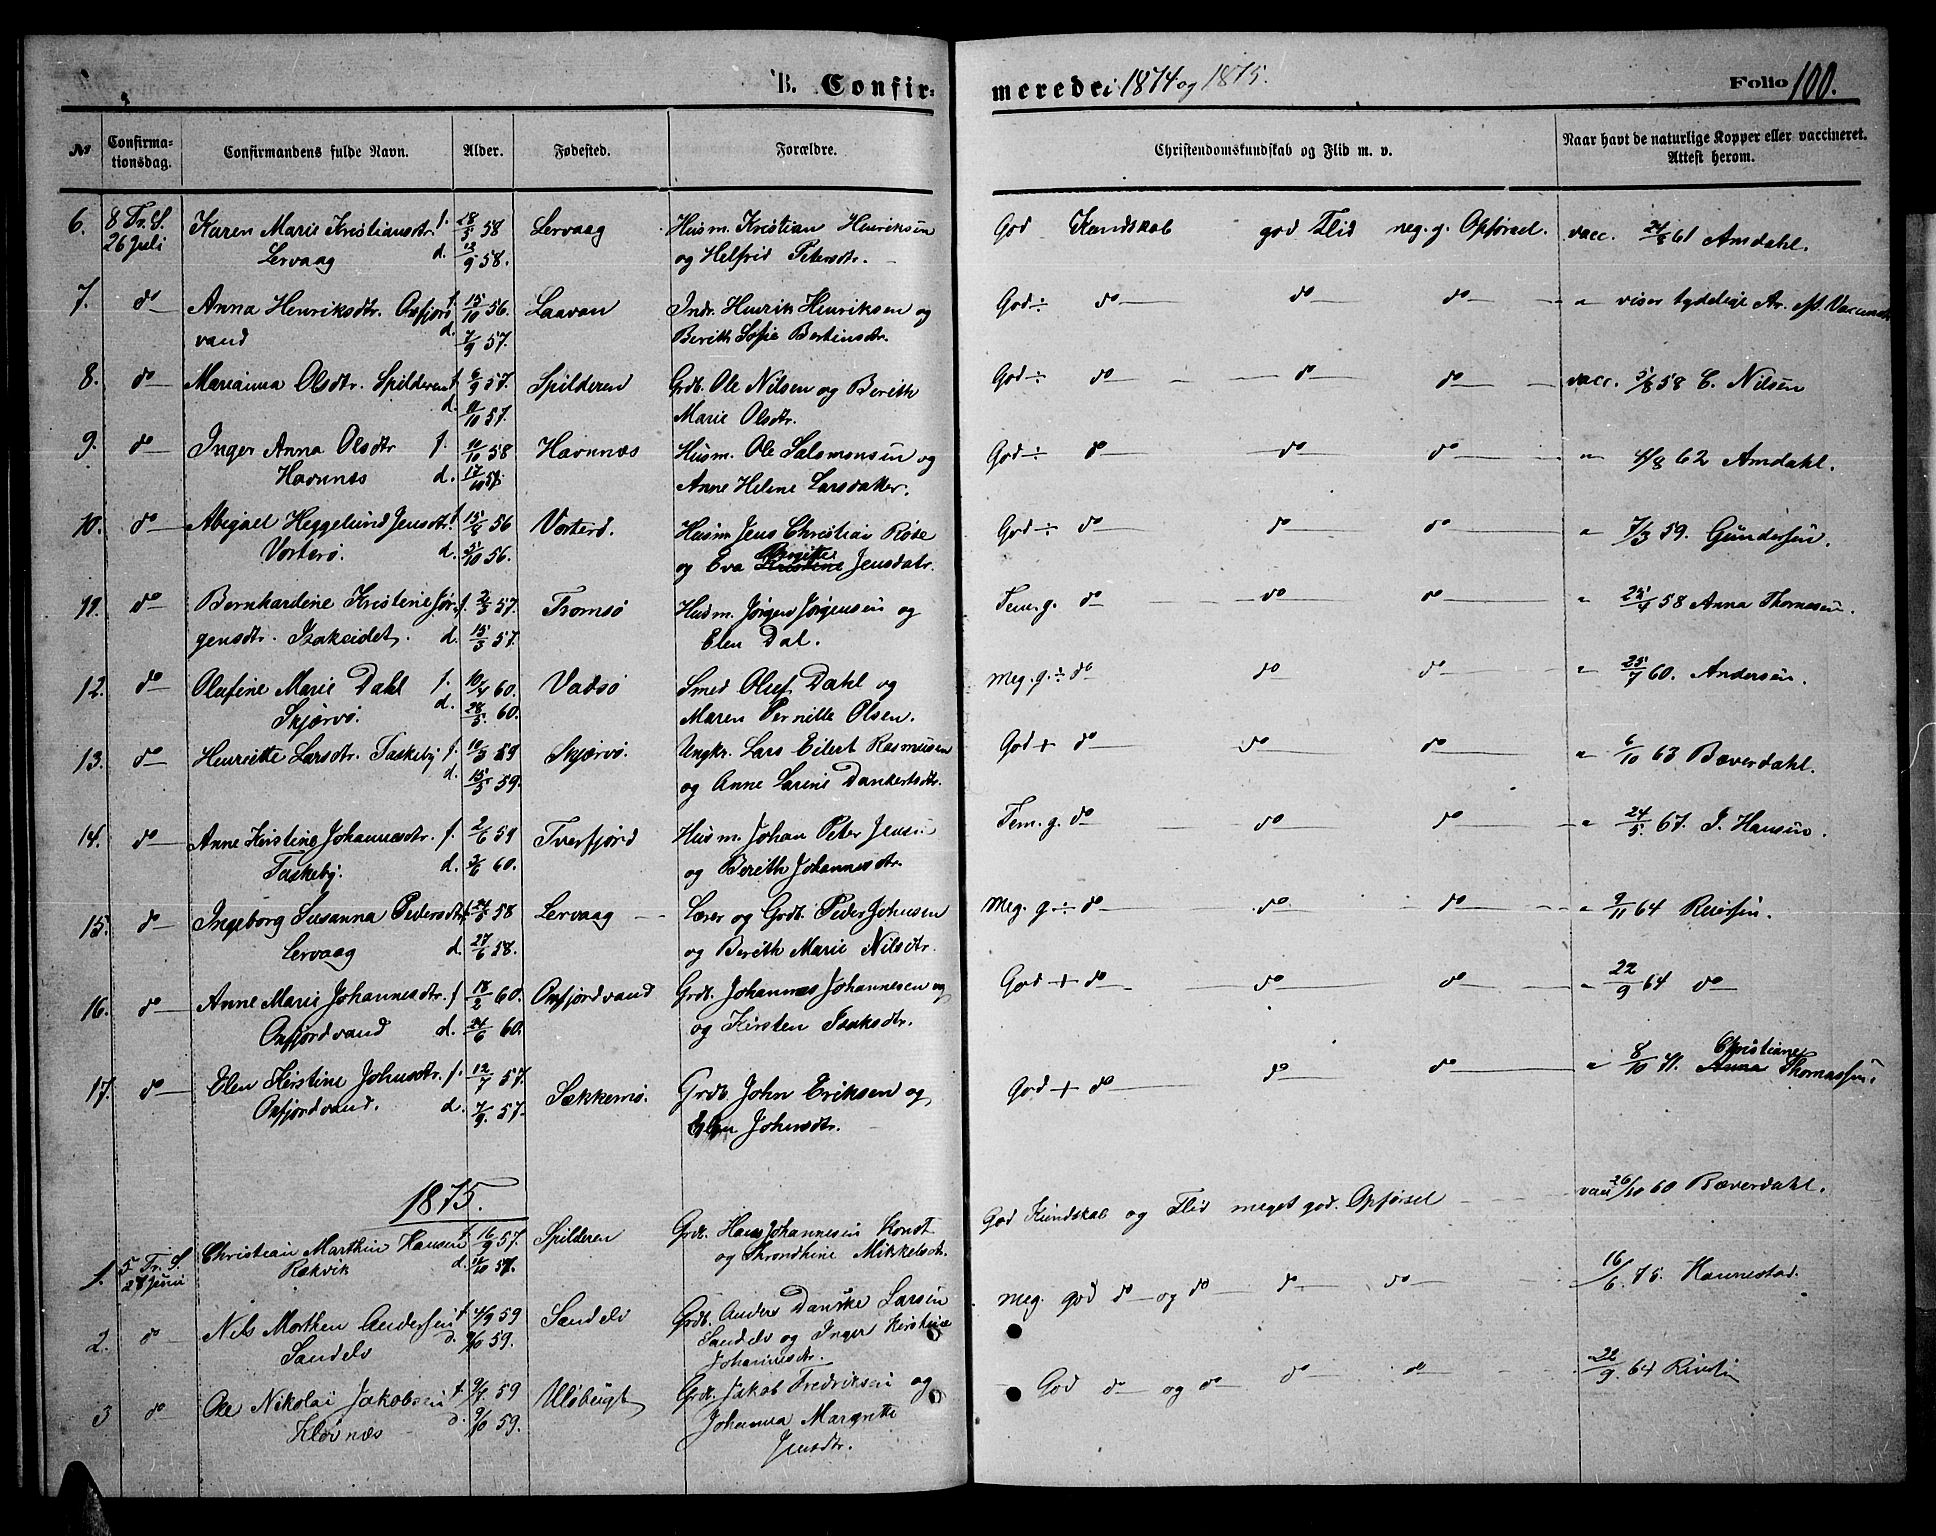 B. Confirmerede i 1874 og 1875. Folio 100.
No Confirmationsdag. Confirmandens fulde Navn. Alder. Fødested. Forældre. Christendomskundskab og Flid m. v. Naar havt de naturlige Kopper eller vaccineret. Attest herom.
6. 8 Tr. S. Karen Marie Kristiansdtr. f. 28/5 58 Lervaag Husm. Kristian Henriksen God Kundskab god Flid meg. g. Opførsel. vacc. 24/8 61 Amdahl.
26 Juli Lervaag d. 12/9 58. og Helfrid Petersdtr.
7. do Anna Henriksdtr. Oxfjord f. 15/10 56. Laavan Indr. Henrik Henriksen og God ÷ do do do " viser tydelige Ar. eft. Vaccinat
vand d. 7/9 57. Berith Sofie Bertinsdtr.
8. do Marianna Olsdtr. Spilderen f. 6/9 57. Spilderen Grdb. Ole Nilsen og Berith God ÷ do do do vacc. 5/8 58 E. Nilsen
d. 11/10 57. Marie Olsdtr.
9. do Inger Anna Olsdtr f. 10/10 58 Havnnæs Husm. Ole Salomonsen og God ÷ do do do " 4/8 62 Amdahl.
Havnnæs d. 17/10 58. Anne Helene Larsdatter.
10. do Abigael Heggelund Jensdtr. f. 15/8 56 Vorterø. Husm. Jens Christian Røse God ÷ do do do " 7/3 59. Gundersen.
Vorterø. d. 5/10 56. og Eva Birgitte Jensdatr.
11. do Bernhardine Kristine Jør- f. 2/3 57. Tromsø Husm. Jørgen Jørgensen og Tem. g. do do do " 25/4 58 Anna Thomesen.
gensdtr. Isakeidet. d. 15/3 57. Elen Dal.
12. do Olufine Marie Dahl f. 10/4 60. Vadsø Smed Oluf Dahl og Meg. g. ÷ do do do " 25/7 60. Andersen.
Skjærvø. d. 28/5 60. Maren Pernille Olsen.
13. do Henriette Larsdtr. Taskeby f. 10/3 59 Skjærvø. Ungkr. Lars Eilert Rasmusen God + do do do " 6/10 63 Bæverdahl.
d. 15/5 59. og Anne Larine Dankertsdtr.
14. do Anne Kirstine Johannesdtr. f. 2/6 59 Tverfjord Husm. Johan Peter Jensen Tem. g. do do do " 24/5 67. J. Hansen.
Taskeby. d. 3/6 60. og Berith Johannesdtr.
15. do Ingeborg Susanna Pedersdtr f. 24/5 58 Lervaag Lærer og Grdb. Peder Johnsen Meg. g. ÷ do do do " 9/11 64 Reiersen.
Lervaag d. 27/6 58. og Berith Marie Nilsdtr.
16. do Anne Marie Johannesdtr. f 18/2 60. Oxfjordvand Grdb. Johannes Johannesen og God + do do do " 22/9 64 do
Oxfjordvand d. 24/6 60. og Kirsten Isaksdtr.
17. do Elen Kirstine Johnsdtr. f. 12/7 57. Sækkemo. Grdb. John Eriksen og God + do do do " 8/10 71. Christiane Thomassen.
Oxfjordvand. d. 7/9. 57. Elen Johnsdtr.
1875.
1. 5 Tr. S. Christian Marthin Hansen f. 16/9 57. Spilderen Grdb. Hans Johannesen Kondt God Kundskab og Flid meget god. Opførsel vacc 26/10 60 Bæverdahl.
27 Juni Rækvik d. 11/10 57. og Throndhine Mikkelsdtr.
2. do Nils Morthen Andersen f. 4/9 59 Sandelv Grdb. Anders Danske Larsen Meg. god do og do do do 16/6 75. Hannestad.
Sandelv d. 9/10 59. Sandelv og Inger Kirstine
Johannesdtr.
3 do Ole Nikolai Jakobsen f. 9/7 59 Uløbugt Grdb. Jakob Fredriksen og God do og do do do 22/9 64
Kløvnæs d. 9/10 59. Johanna Margrette
Jensdtr.